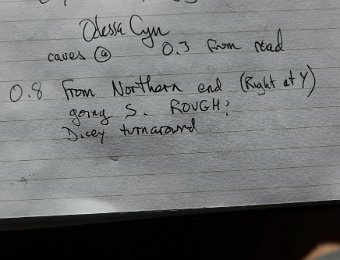 Odessa Cyn
caves @ 0.3 from road
0.8 from Northern end (Right at Y)
going S. ROUGH!
Dicey turnaround